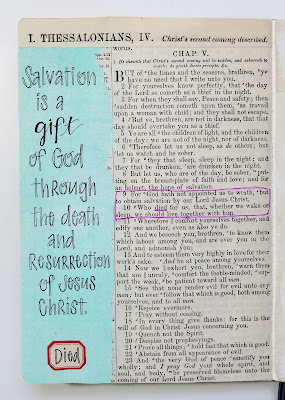 I. THESSALONIANS, IV. Christ's second coming described.
words.
CHAP. V.
BUT of the times and the seasons, brethren, ye
have no need that I write unto you.
2 For yourselves know perfectly, that the day
of the Lord so cometh as a thief in the night.
3 For when they shall say, Peace and safety; then
sudden destruction cometh upon them, as travail
upon a woman with child; and they shall not escape.
4 But ye, brethren, are not in darkness, that that
day should overtake you as a thief.
5 Ye are all the children of light, and the children
of the day: we are not of the night, nor of darkness.
6 Therefore let us not sleep, as do others; but
let us watch and be sober.
7 For they that sleep, sleep in the night; and
they that be drunken, are drunken in the night.
8 But let us, who are of the day, be sober, putting
on the breast-plate of faith and love; and for
an helmet, the hope of salvation.
9 For God hath not appointed us to wrath, but
to obtain salvation by our Lord Jesus Christ,
10 Who died for us, that, whether we wake or
sleep, we should live together with him.
11 Wherefore comfort yourselves together, and
edify one another, even as also ye do.
12 And we beseech you, brethren, to know them
which labour among you, and are over you in the
Lord, and admonish you;
13 And to esteem them very highly in love for their
work's sake. And be at peace among yourselves.
14 Now we exhort you, brethren, warn them
that are unruly, comfort the feeble-minded, support
the weak, be patient toward all men.
15 See that none render evil for evil unto any
man; but ever follow that which is good, both among
yourselves, and to all men.
16 Rejoice evermore.
17 Pray without ceasing.
18 In every thing give thanks: for this is the
will of God in Christ Jesus concerning you.
19 Quench not the Spirit.
20 Despise not prophesyings.
21 Prove all things; hold fast that which is good.
22 Abstain from all appearance of evil.
23 And the very God of peace sanctify you
wholly; and I pray God your whole spirit, and
soul, and body, be preserved blameless unto the
coming of our Lord Jesus Christ.
Salvation
is a
gift
of God
through
the death
and
Resurrection
of Jesus
Christ.
Died